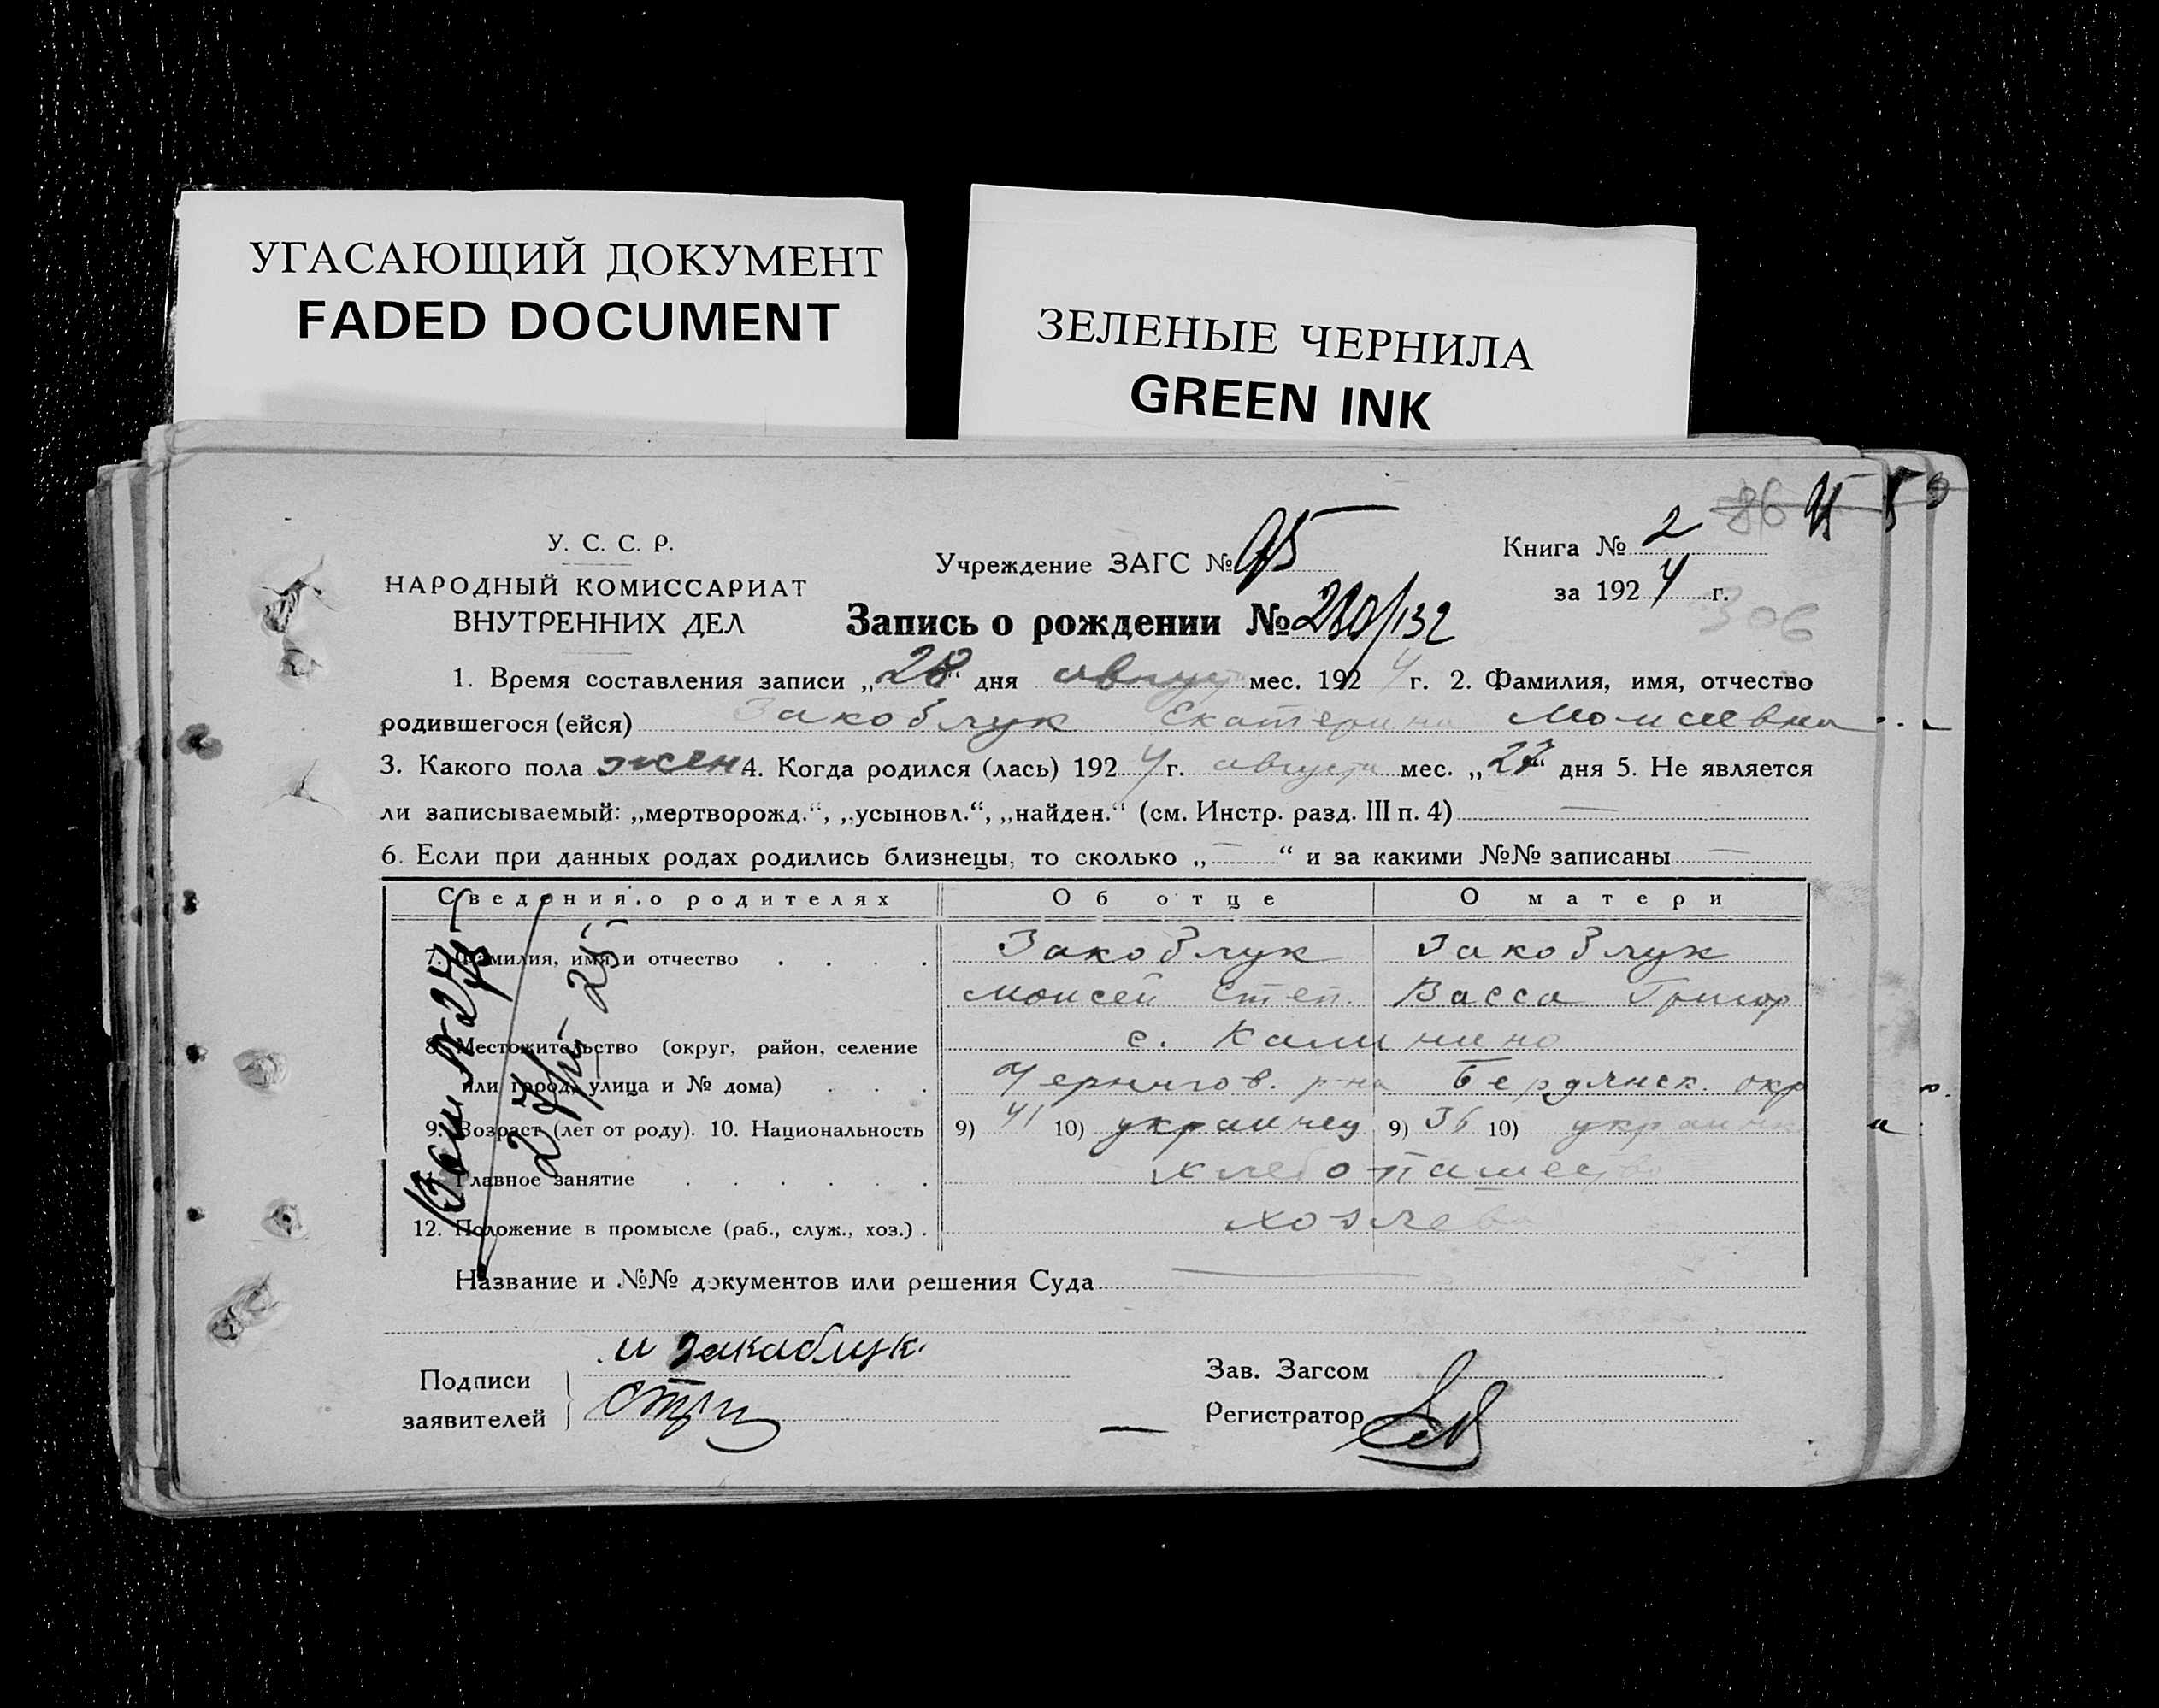 УГАСАЮЩИЙ ДОКУМЕНТ
FADED DOCUMENT
ЗЕЛЕНЫЕ ЧЕРНИЛА
GREEN INK
86
У. С. С. Р.
НАРОДНЫЙ КОМИССАРИАТ
ВНУТРЕННИХ ДЕЛ
Учреждение ЗАГС №
Книга № 2
за 1924 г.
306
Запись о рождении № 280/132
1. Время составления записи „28“ дня август мес. 1924 г. 2. Фамилия, имя, отчество
родившегося (ейся) Закоблук Екатерина Моисеевна
3. Какого пола жен 4. Когда родился (лась) 1924 г. августа мес. „23“ дня 5. Не является
ли записываемый: „мертворожд.“, „усыновл.“, „найден.“ (см. Инстр. разд. III п. 4) —
6. Если при данных родах родились близнецы, то сколько „—“ и за какими №№ записаны —
Сведения о родителях Об отце О матери
7. Фамилия, имя и отчество . . . . Закоблук Закоблук
Моисей Степ. Васса Григор
8. Местожительство (округ, район, селение с. Калинино
или город, улица и № дома) . . . Чернигов. р-на Бердянск. окр
9. Возраст (лет от роду). 10. Национальность 9) 41 10) украинец 9) 36 10) украинка
11. Главное занятие . . . . . . хлебопашество
12. Положение в промысле (раб., служ., хоз.) . хозяева
Название и №№ документов или решения Суда —
Подписи
заявителей
М Закаблук.
Зав. Загсом
Регистратор